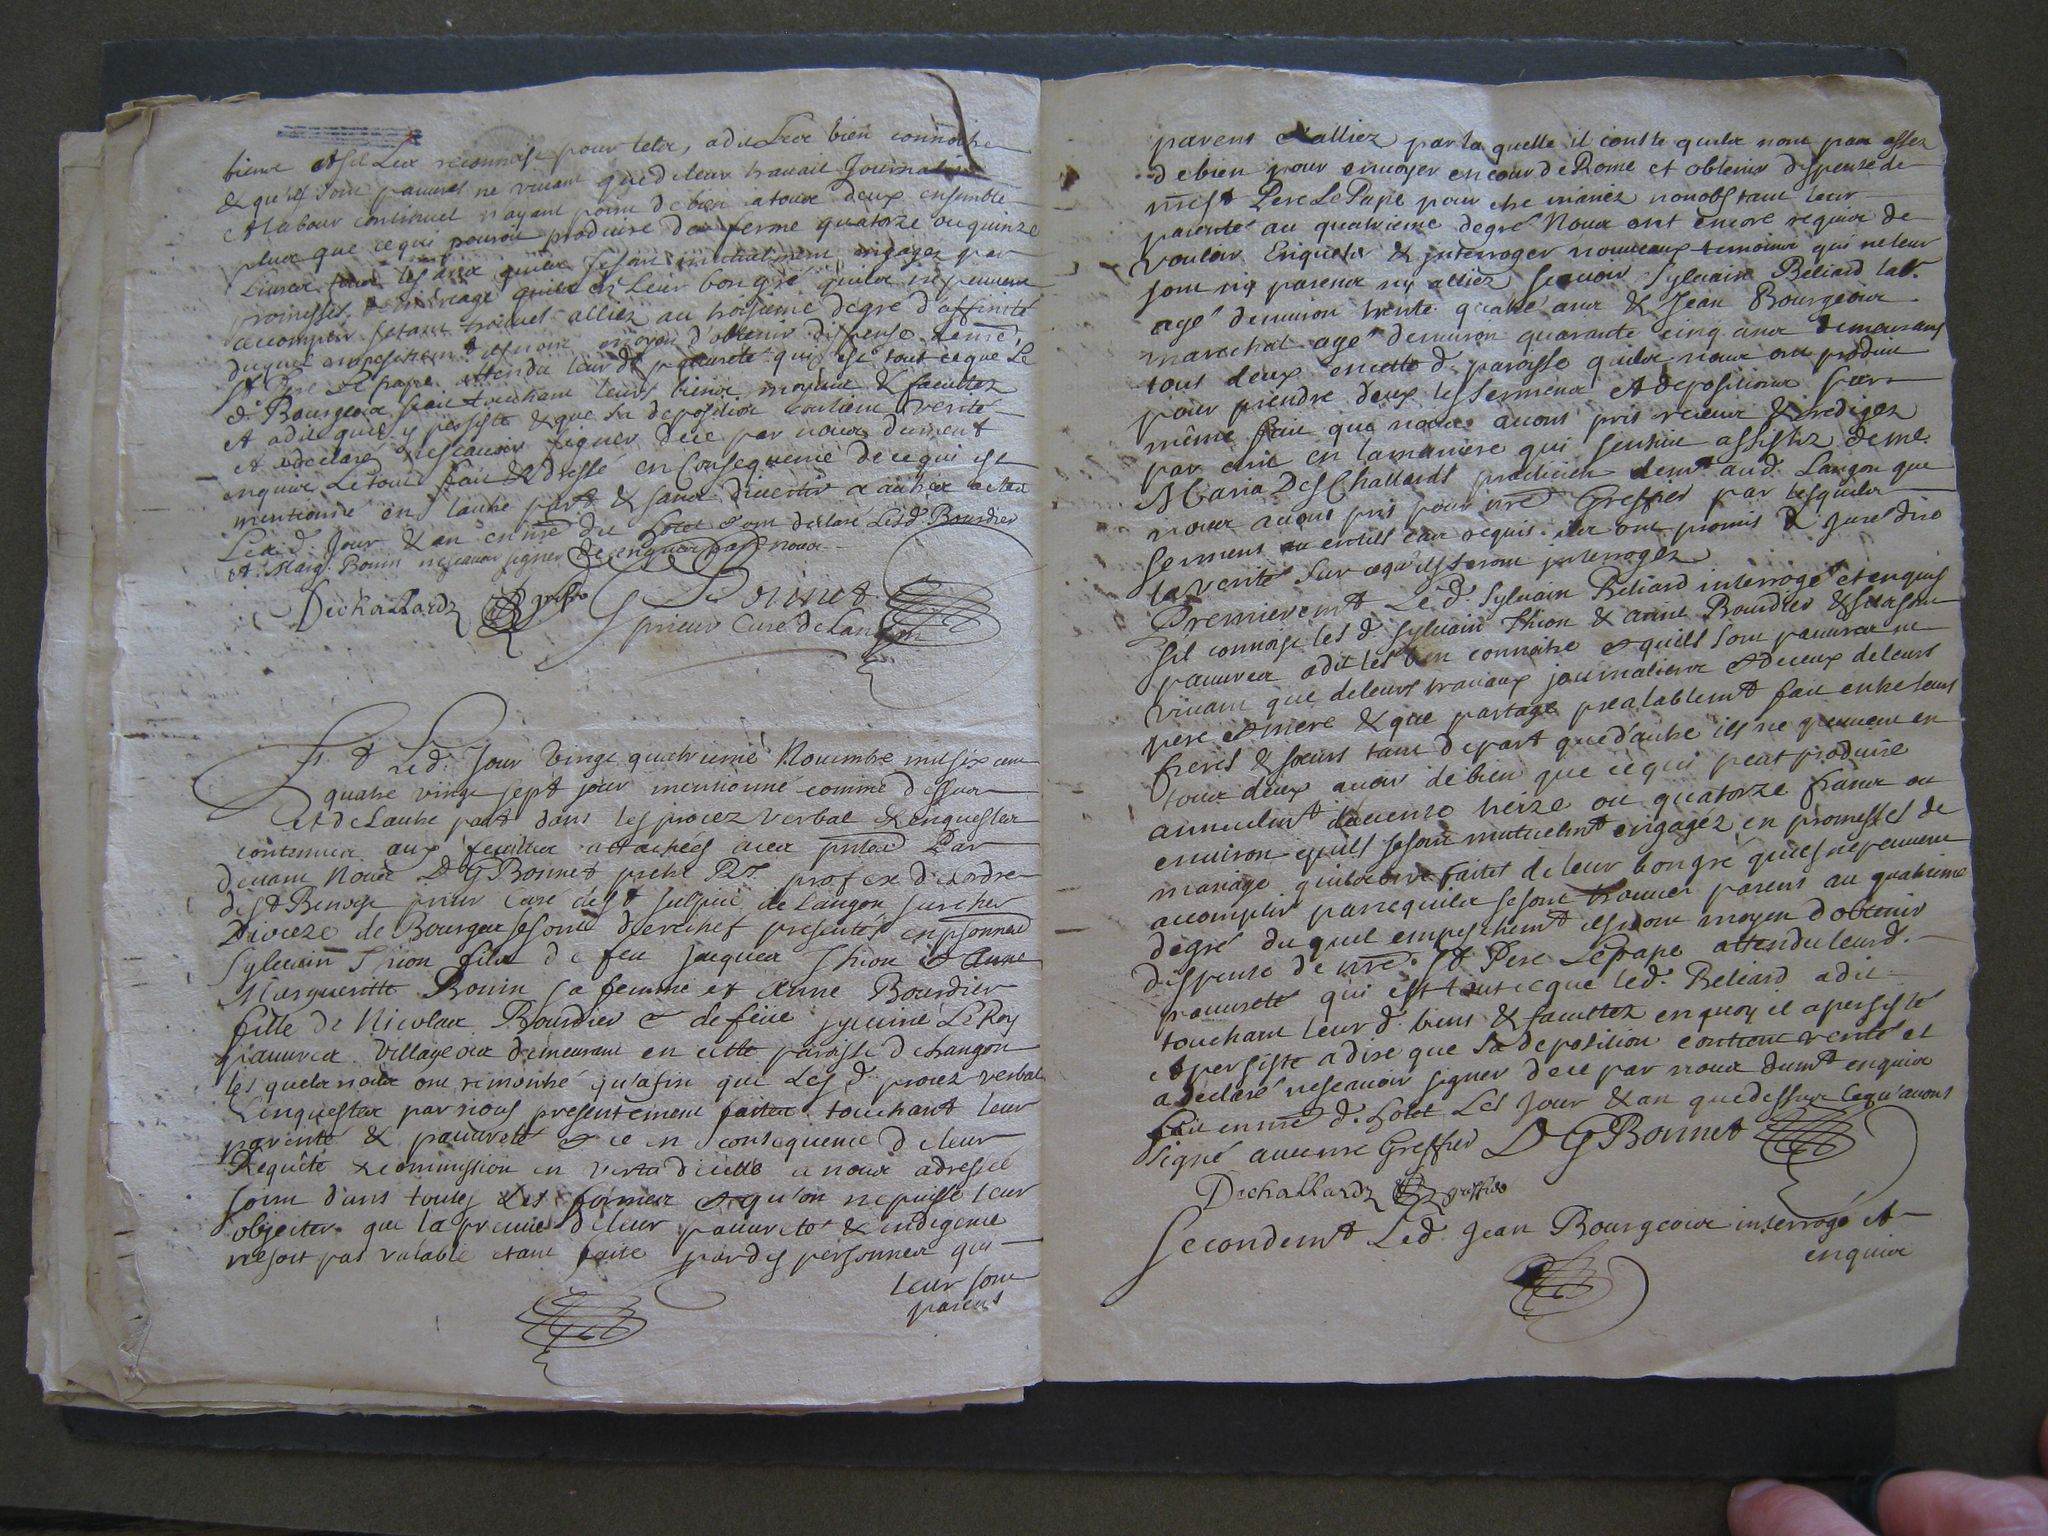 biens et sil Les reconnoist pour tels, a dit Les bien connoitre
& qu'ils sont pauvres ne vivant que de leur travail Journalier
et labour continuel n'ayant point de bien a tous deux ensemble
plus que ce qui pouroit produire de ferme quatorze ou quinze
Livres tous les ans quils se sont mutuelment engagez par
promesses de mariage quils ont Leur bon gré quils ne peuvent
accomplir setant trouvés alliez au troisieme degré d'affinité
duquel empeschemt ils nont moyen d'obtenir dispense de nre
St Pere Le pape attendu leur de pauvreté qui est tout ce que Le
d. Bourgeois scait touchant leurs biens moyens & facultez
et a dit quil y persiste & que sa deposition contient verité
et a declaré ne scavoir signer de ce par nous dument
enquis Le tout fait & dressé en consequence de ce qui est
mentionné en l'autre part & sans divertir a autres actes
Les d. Jour & an en nre dit hotel & ont declaré Lesd. Bourdier
et Marg. Bonin ne scavoir signer de ce enquis par nous
Dechallardz greffier
D G Bonnet
prieur Curé de Langon
Et Led. Jour vingt quatrieme Novembre mil six cent
quatre vingt sept jour mentionné comme dessus
et de Lautre part dans les procez verbal & enquestes
contenues aux feuilles attachées avec pntes Par
devant Nous D G Bonnet pretre Rx profex de Lordre
de St Benoist prieur Curé de St Sulpice de Langon sur cher
Dioceze de Bourges se sont derechef presentés en psonnes
Sylvain Thion fils de feu Jacques Thion & Anne
Margueritte Bonin sa femme et Anne Bourdier
fille de Nicolas Bourdier & de feue Jacquine LeRoy
pauvres Villageois demeurant en cette paroisse de Langon
les quels nous ont remontré qu'afin que Les d. procez verbal
& enquestes par nous presentement faites touchant leur
parenté & pauvreté & ce en consequence de leur
Requête & commission en vertu dicelle a nous adressée
soient dans toutes les formes & qu'on ne puisse leur
objecter que la preuve de leur pauvreté & indigence
ne soit pas valable etant faite par des personnes qui
leur sont
parens
parens & alliez par la quelle il conste quils nont pas assez
de bien pour envoyer en cour de Rome et obtenir dispense de
nre St Pere Le Pape pour etre mariez nonobstant leur
parenté au quatrieme degré Nous ont encore requis de
vouloir Enquester & interroger nouveaux temoins qui ne leur
sont ny parens ny alliez scavoir Sylvain Beliard labr
agé denviron trente quatre ans & Jean Bourgeois
marechal agé denviron quarante cinq ans demeurans
tous deux en cette d. paroisse quils nous ont produit
pour prendre deux les sermens et depositions sur
même fait que nous avons pris receus & redigez
par ecrit en la maniere qui sensuit assistez de me
Maria DesChallards praticien demt aud. Langon que
nous avons pris pour nre Greffier par lesquels
sermens au en tels cas requis ils ont promis & juré dire
la verité sur ce qu'ils seront interrogez
Premierement Le d. Sylvain Beliard interrogé et enquis
sil connoist les d. Sylvain Thion & anne Bourdier & sils sont
pauvres a dit les bien connoitre & quils sont pauvres ne
vivant que de leurs travaux journaliers & de ceux de leurs
pere & mere & que partage prealablemt fait entre leurs
freres & soeurs tant de part que d'autre ils ne peuvent en
tous deux avoir de bien que ce qui peut produire
annuelemt de vente treize ou quatorze francs ou
environ quils se sont mutuelemt engagez en promesses de
mariage quils ont faites de leur bon gré quils ne peuvent
acomplir parcequils se sont trouvez parens au quatrieme
degré du quel empeschemt ils n'ont moyen d'obtenir
dispense de nre St Pere Le Pape attendu leurd.
pauvreté qui est tout ce que led. Beliard a dit
touchant leur d. biens & facultez en quoy il a persisté
& persiste a dire que sa deposition contient verité et
a declaré ne scavoir signer de ce par nous dumt enquis
fait en nre d. hotel Les Jour & an que dessus ce qu'avons
signé avec nre Greffier D G Bonnet
Dechallardz greffier
Secondemt Led. Jean Bourgeois interrogé et
enquis